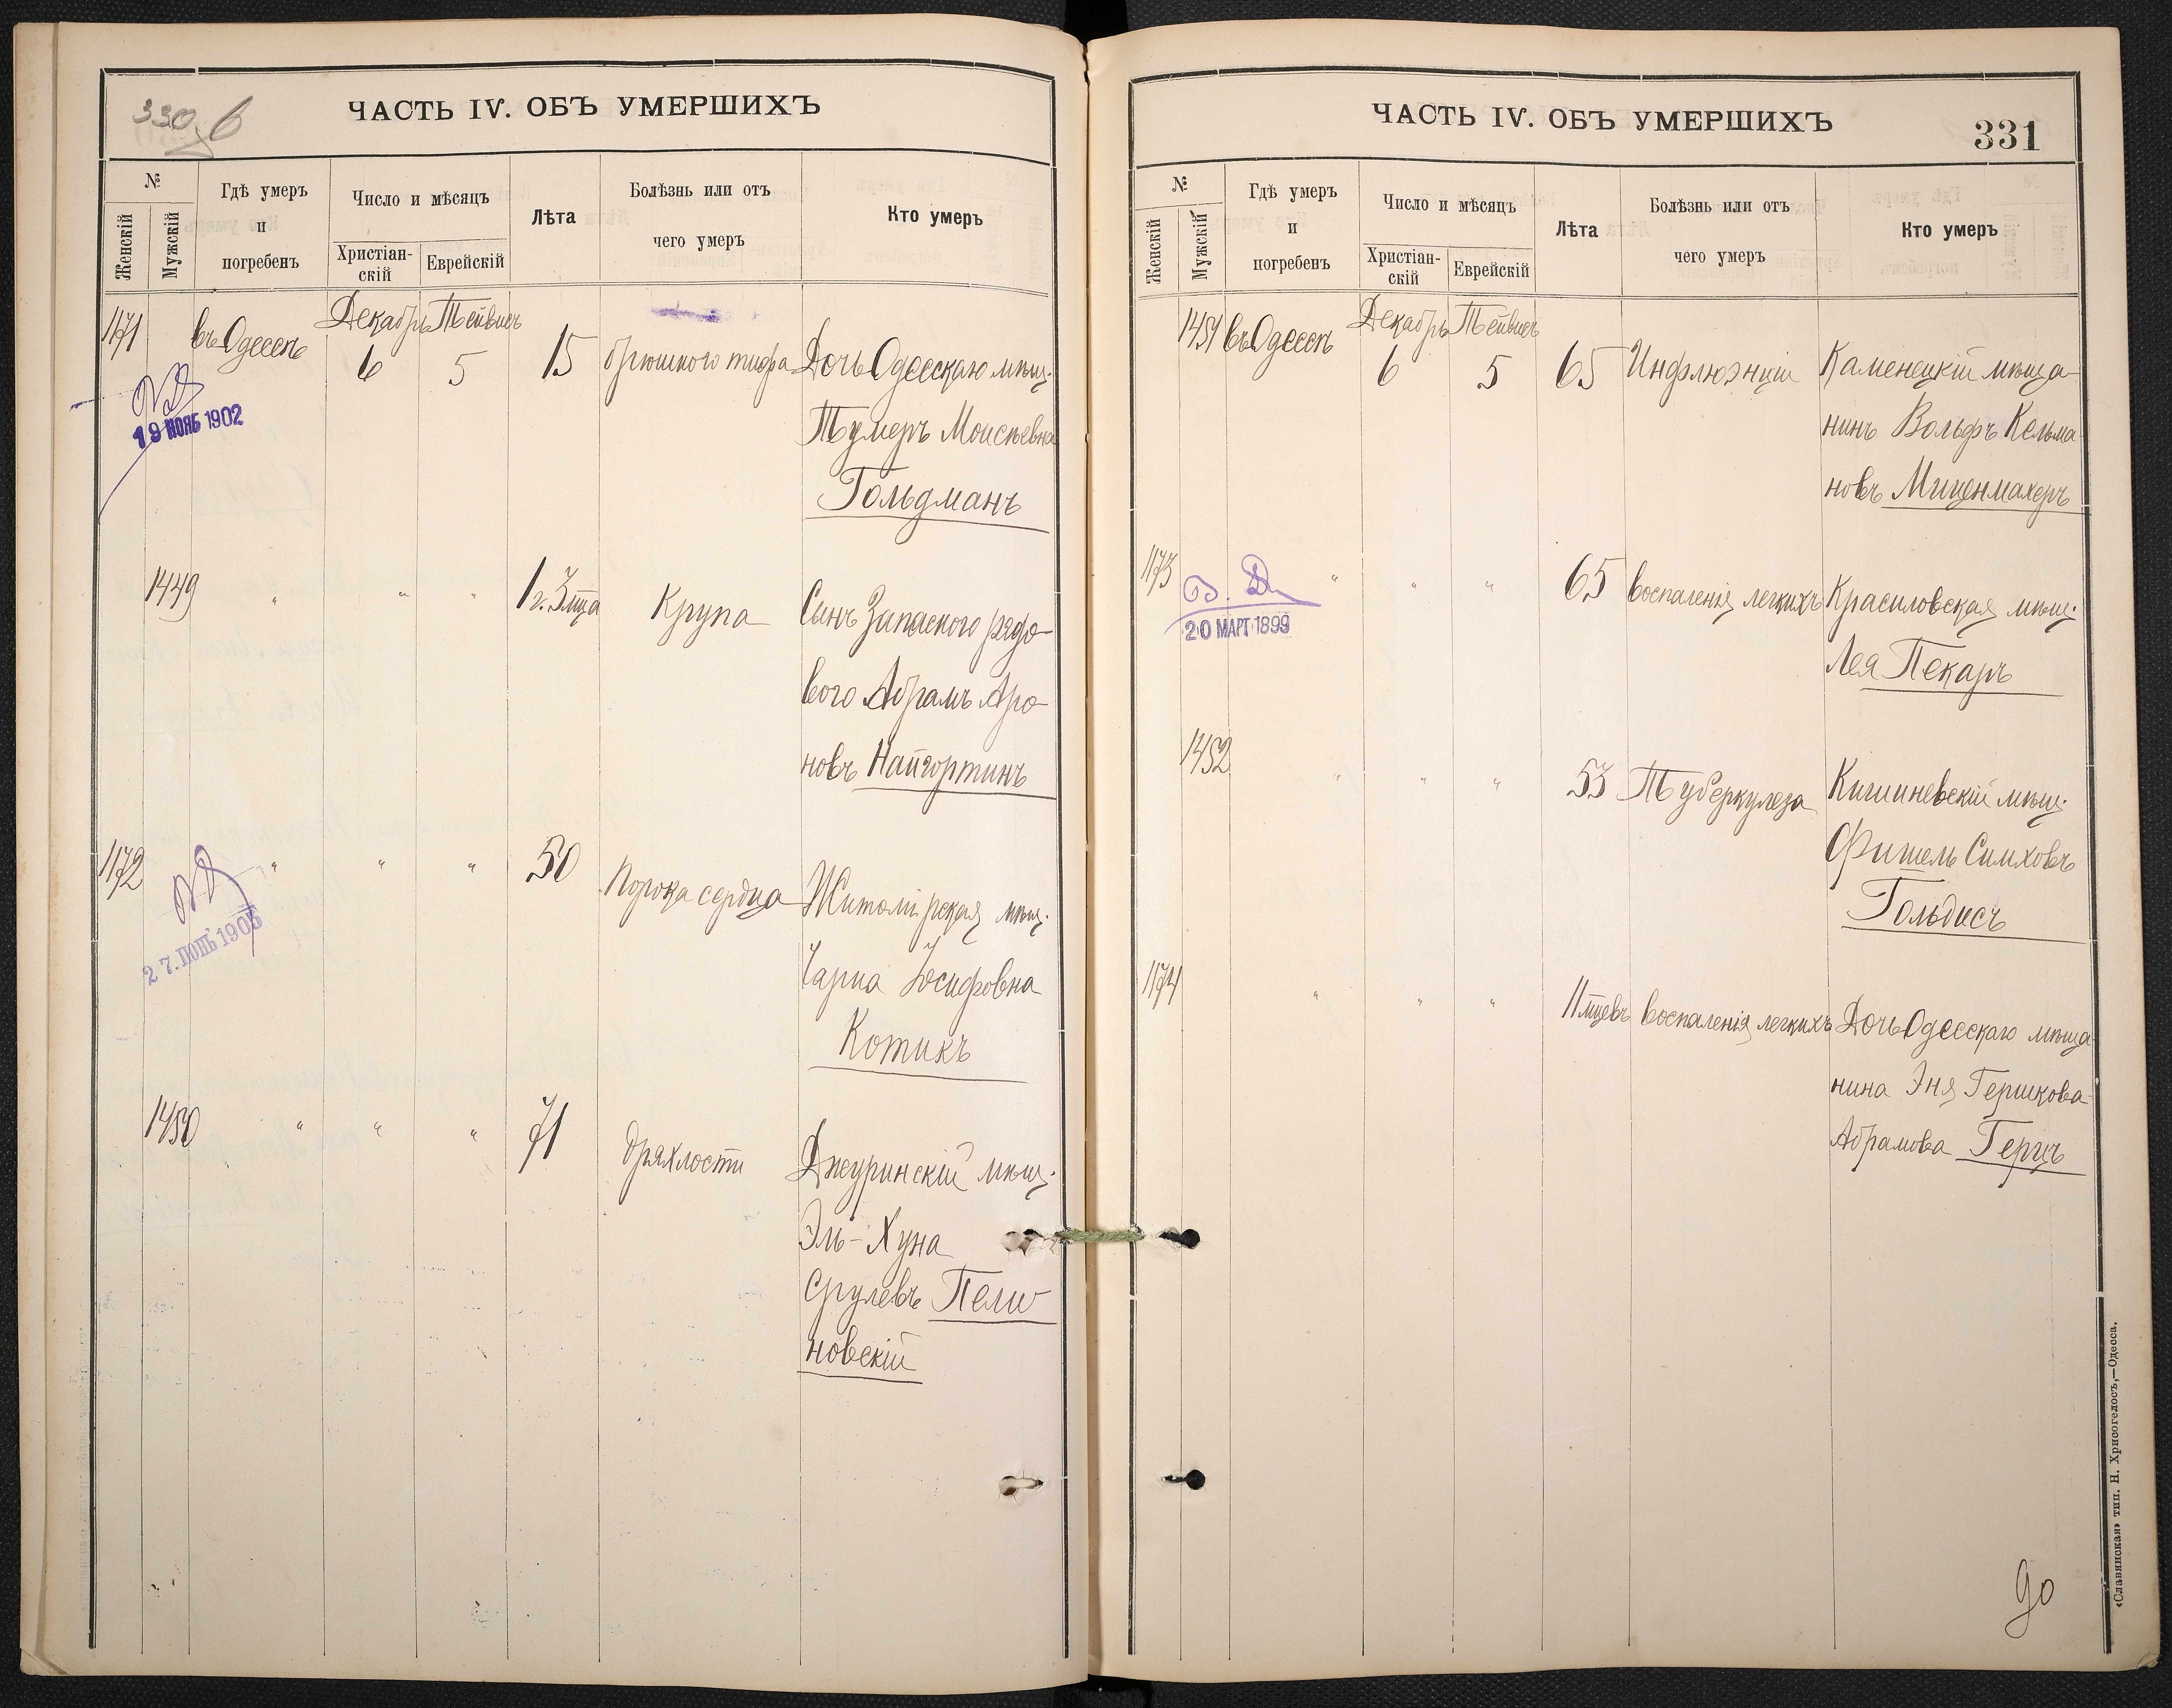 330 б
ЧАСТЬ IV. ОБЪ УМЕРШИХЪ
№
Женскій
Мужскій
Гдѣ умеръ
и
погребенъ
Число и мѣсяцъ
Христіан-
скій
Еврейскій
Лѣта
Болѣзнь или отъ
чего умеръ
Кто умеръ
Декабрь Тейвисъ
1171 въ Одессѣ 6 5 15 брюшного тифа Дочь Одесскаго мѣщ.
Тумеръ Моисѣевна
Гольдманъ
19 НОЯБ 1902
1449 " " " 1 г. 3 мца Крупа Сынъ Запаского рядо-
вого Абрамъ Аро-
новъ Найгортинъ
1172 " " " 50 Порока сердца Житомірская мѣщ.
Чарна Іосифовна
Котикъ
27. ІЮНЬ 1905
1450 " " " 71 дряхлости Джуринскій мѣщ.
Эль-Хуна
Срулевъ Пели-
новскій
ЧАСТЬ IV. ОБЪ УМЕРШИХЪ
331
№
Женскій
Мужскій
Гдѣ умеръ
и
погребенъ
Число и мѣсяцъ
Христіан-
скій
Еврейскій
Лѣта
Болѣзнь или отъ
чего умеръ
Кто умеръ
Декабрь Тейвисъ
1451 въ Одессѣ 6 5 65 Инфлюэнціи Каменецкій мѣща-
нинъ Вольфъ Кельма-
новъ Миценмахеръ
1173 " " " 65 воспаленія легкихъ Красиловская мѣщ.
Лея Пекаръ
20 МАРТ 1899
1452 " " " 53 Туберкулеза Кишиневскій мѣщ.
Фишель Симховъ
Гольдисъ
1174 " " " 11 мцевъ воспаленія легкихъ Дочь Одесскаго мѣща-
нина Эня Гершкова-
Абрамова Герцъ
«Славянская» тип. Н. Хрисогелосъ,—Одесса.